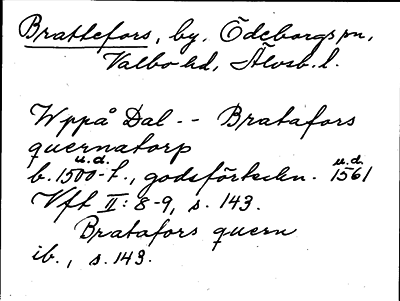 Brattefors, by, Ödeborgs sn,
Valbo hd, Älvsb. l.
Uppå Dal -- Bratafors
quernatorp
u.d. u.d.
b. 1500-t., godsförteckn. 1561
Vft II: 8-9, s. 143.
Bratafors quern
ib., s. 143.